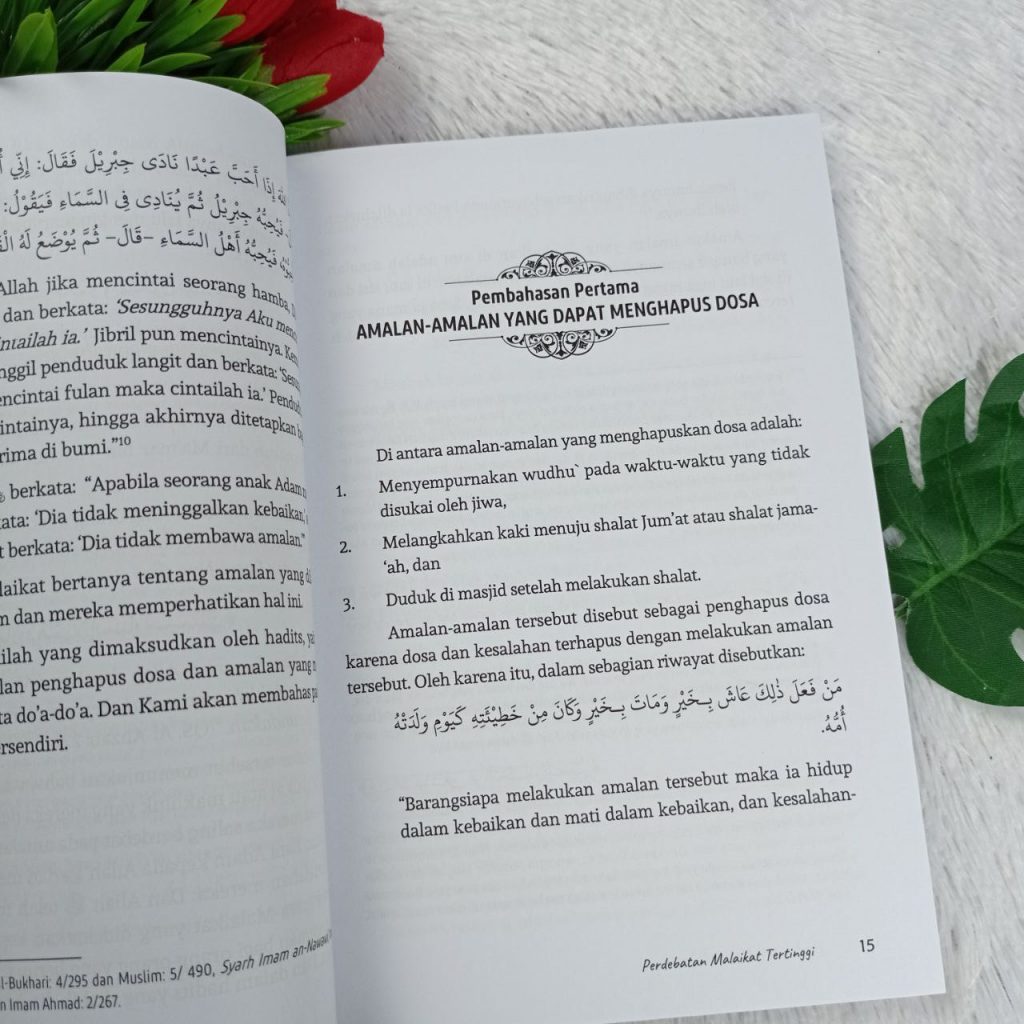 إِذَا أَحَبَّ عَبْدًا نَادَى جِبْرِيْلَ فَقَالَ: إِنِّي
فَيُحِبُّهُ جِبْرِيْلُ ثُمَّ يُنَادِى فِى السَّمَاءِ فَيَقُوْلُ:
فَيُحِبُّهُ أَهْلُ السَّمَاءِ –قَالَ– ثُمَّ يُوْضَعُ لَهُ
Allah jika mencintai seorang hamba,
dan berkata: ‘Sesungguhnya Aku
ia.’ Jibril pun mencintainya.
penduduk langit dan berkata:
fulan maka cintailah ia.’
hingga akhirnya ditetapkan
di bumi.”10
berkata: “Apabila seorang anak Adam
‘Dia tidak meninggalkan kebaikan,
berkata: ‘Dia tidak membawa amalan.”
bertanya tentang amalan yang
dan mereka memperhatikan hal ini.
yang dimaksudkan oleh hadits,
penghapus dosa dan amalan yang
do’a-do’a. Dan Kami akan membahas
4/295 dan Muslim: 5/ 490, Syarh Imam an-Nawawi
Imam Ahmad: 2/267.
Pembahasan Pertama
AMALAN-AMALAN YANG DAPAT MENGHAPUS DOSA
Di antara amalan-amalan yang menghapuskan dosa adalah:
1. Menyempurnakan wudhu` pada waktu-waktu yang tidak
disukai oleh jiwa,
2. Melangkahkan kaki menuju shalat Jum’at atau shalat jama-
‘ah, dan
3. Duduk di masjid setelah melakukan shalat.
Amalan-amalan tersebut disebut sebagai penghapus dosa
karena dosa dan kesalahan terhapus dengan melakukan amalan
tersebut. Oleh karena itu, dalam sebagian riwayat disebutkan:
مَنْ فَعَلَ ذٰلِكَ عَاشَ بِـخَيْرٍ وَمَاتَ بِـخَيْرٍ وَكَانَ مِنْ خَطِيْئَتِهِ كَيَوْمِ وَلَدَتْهُ
أُمُّهُ.
“Barangsiapa melakukan amalan tersebut maka ia hidup
dalam kebaikan dan mati dalam kebaikan, dan kesalahan-
Perdebatan Malaikat Tertinggi 15